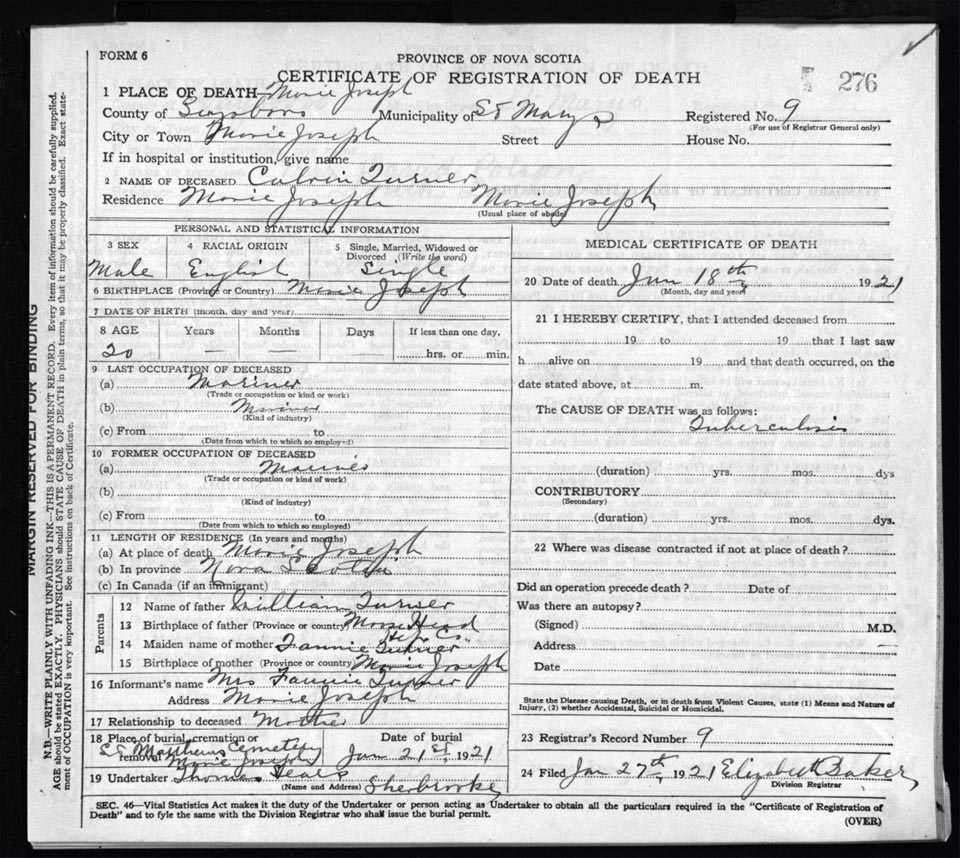 FORM 6
PROVINCE OF NOVA SCOTIA
CERTIFICATE OF REGISTRATION OF DEATH
276
1 PLACE OF DEATH—Marie Joseph
County of Guysboro Municipality of St Marys Registered No. 9
(For use of Registrar General only)
City or Town Marie Joseph Street House No.
If in hospital or institution, give name
2 NAME OF DECEASED Calvin Turner
Residence Marie Joseph Marie Joseph
(Usual place of abode)
PERSONAL AND STATISTICAL INFORMATION
3 SEX 4 RACIAL ORIGIN 5 Single, Married, Widowed or Divorced (Write the word)
Male English Single
6 BIRTHPLACE (Province or Country) Marie Joseph
7 DATE OF BIRTH (month, day and year)
8 AGE Years Months Days If less than one day,
20 — — hrs. or min.
9 LAST OCCUPATION OF DECEASED
(a) Mariner
(Trade or occupation or kind or work)
(b) Mariner
(Kind of industry)
(c) From to
(Date from which to which so employed)
10 FORMER OCCUPATION OF DECEASED
(a) Mariner
(Trade or occupation or kind of work)
(b)
(Kind of industry)
(c) From to
(Date from which to which so employed)
11 LENGTH OF RESIDENCE (In years and months)
(a) At place of death Marie Joseph
(b) In province Nova Scotia
(c) In Canada (if an immigrant)
Parents
12 Name of father William Turner
13 Birthplace of father (Province or country) Moose Head
Hfx Co.
14 Maiden name of mother Fannie Turner
15 Birthplace of mother (Province or country) Marie Joseph
16 Informant's name Mrs Fannie Turner
Address Marie Joseph
17 Relationship to deceased Mother
18 Place of burial, cremation or removal St Matthews Cemetery Marie Joseph
Date of burial
Jan 21st, 1921
19 Undertaker Thomas Sherbrooke
(Name and Address)
MEDICAL CERTIFICATE OF DEATH
20 Date of death Jan 18th 1921
(Month, day and year)
21 I HEREBY CERTIFY, that I attended deceased from
19 to 19 that I last saw
h alive on 19 and that death occurred, on the
date stated above, at m.
The CAUSE OF DEATH was as follows:
Tuberculosis
(duration) yrs. mos. dys
CONTRIBUTORY
(Secondary)
(duration) yrs. mos. dys.
22 Where was disease contracted if not at place of death?
Did an operation precede death? Date of
Was there an autopsy?
(Signed) M.D.
Address
Date
State the Disease causing Death, or in death from Violent Causes, state (1) Means and Nature of
Injury, (2) whether Accidental, Suicidal or Homicidal.
23 Registrar's Record Number 9
24 Filed Jan 27th, 1921 Elizabeth Baker
Division Registrar
SEC. 46—Vital Statistics Act makes it the duty of the Undertaker or person acting as Undertaker to obtain all the particulars required in the "Certificate of Registration of
Death" and to fyle the same with the Division Registrar who shall issue the burial permit.
(OVER)
MARGIN RESERVED FOR BINDING
N.B.—WRITE PLAINLY WITH UNFADING INK—THIS IS A PERMANENT RECORD. Every item of information should be carefully supplied.
AGE should be stated EXACTLY. PHYSICIANS should STATE CAUSE OF DEATH in plain terms, so that it may be properly classified. Exact state-
ment of OCCUPATION is very important. See instructions on back of Certificate.